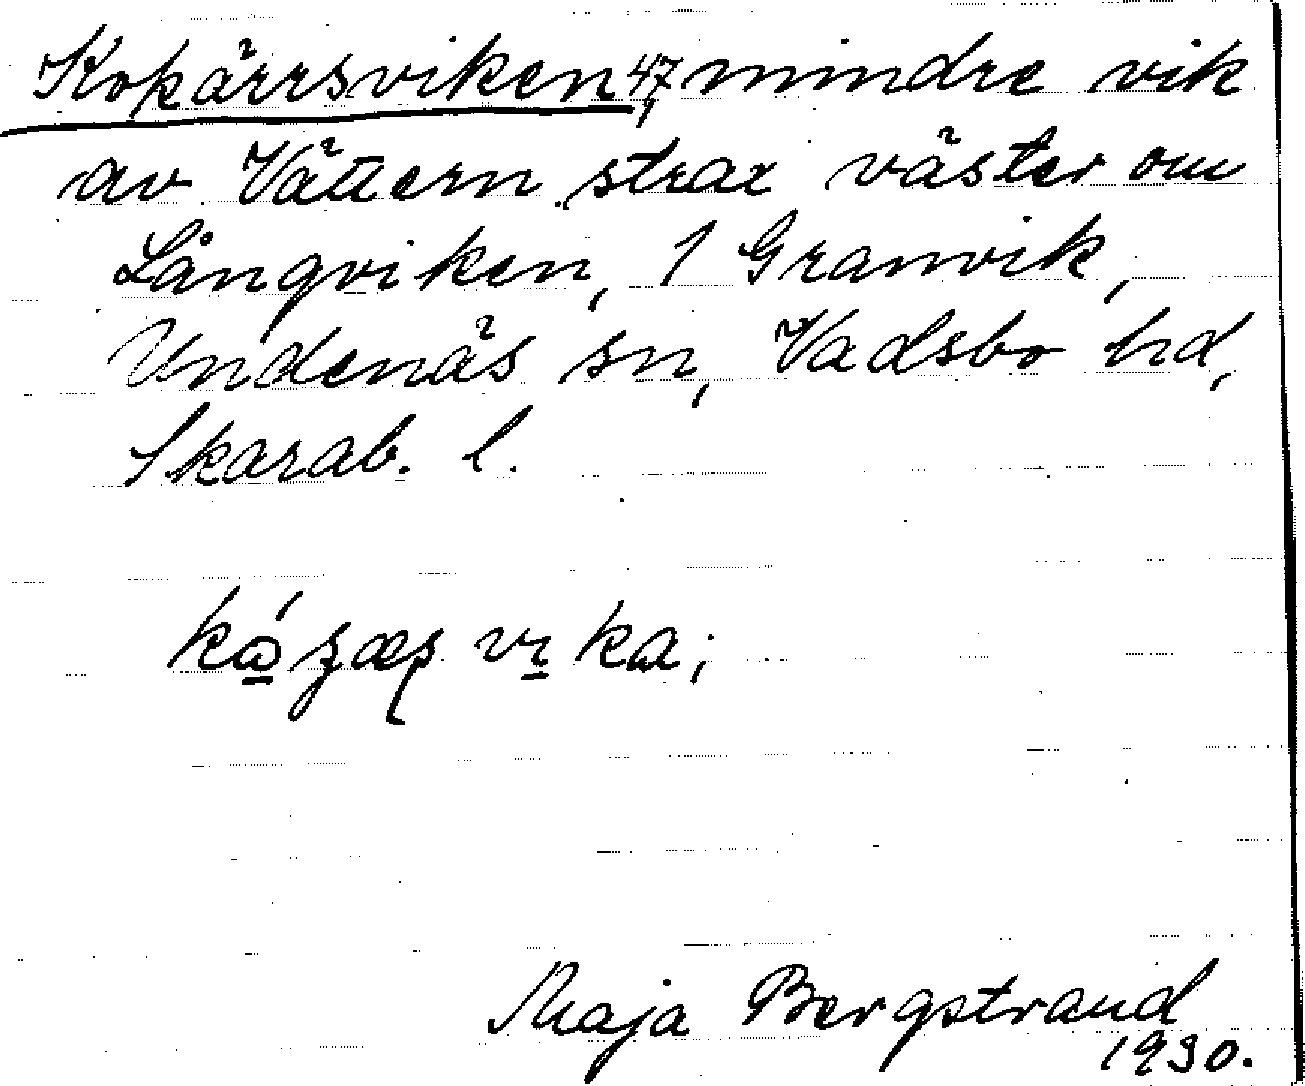 Kokärrsviken 47, mindre vik
av Vättern strax väster om
Långviken, 1 Granvik,
Undenäs sn, Vadsbo hd,
Skarab. l.
Maja Bergstrand
1930.